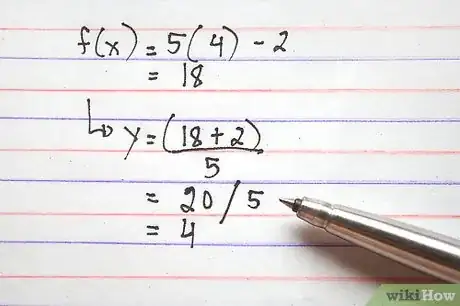 f(x) = 5(4) - 2
= 18
↳ y = (18 + 2)
5
= 20 / 5
= 4
wikiHow